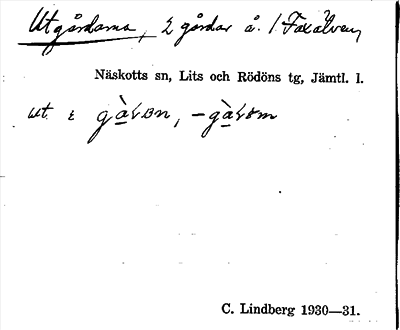 Utgårdarna, 2 gårdar å. 1 Faxälven,
Näskotts sn, Lits och Rödöns tg, Jämtl. l.
ut
C. Lindberg 1930—31.